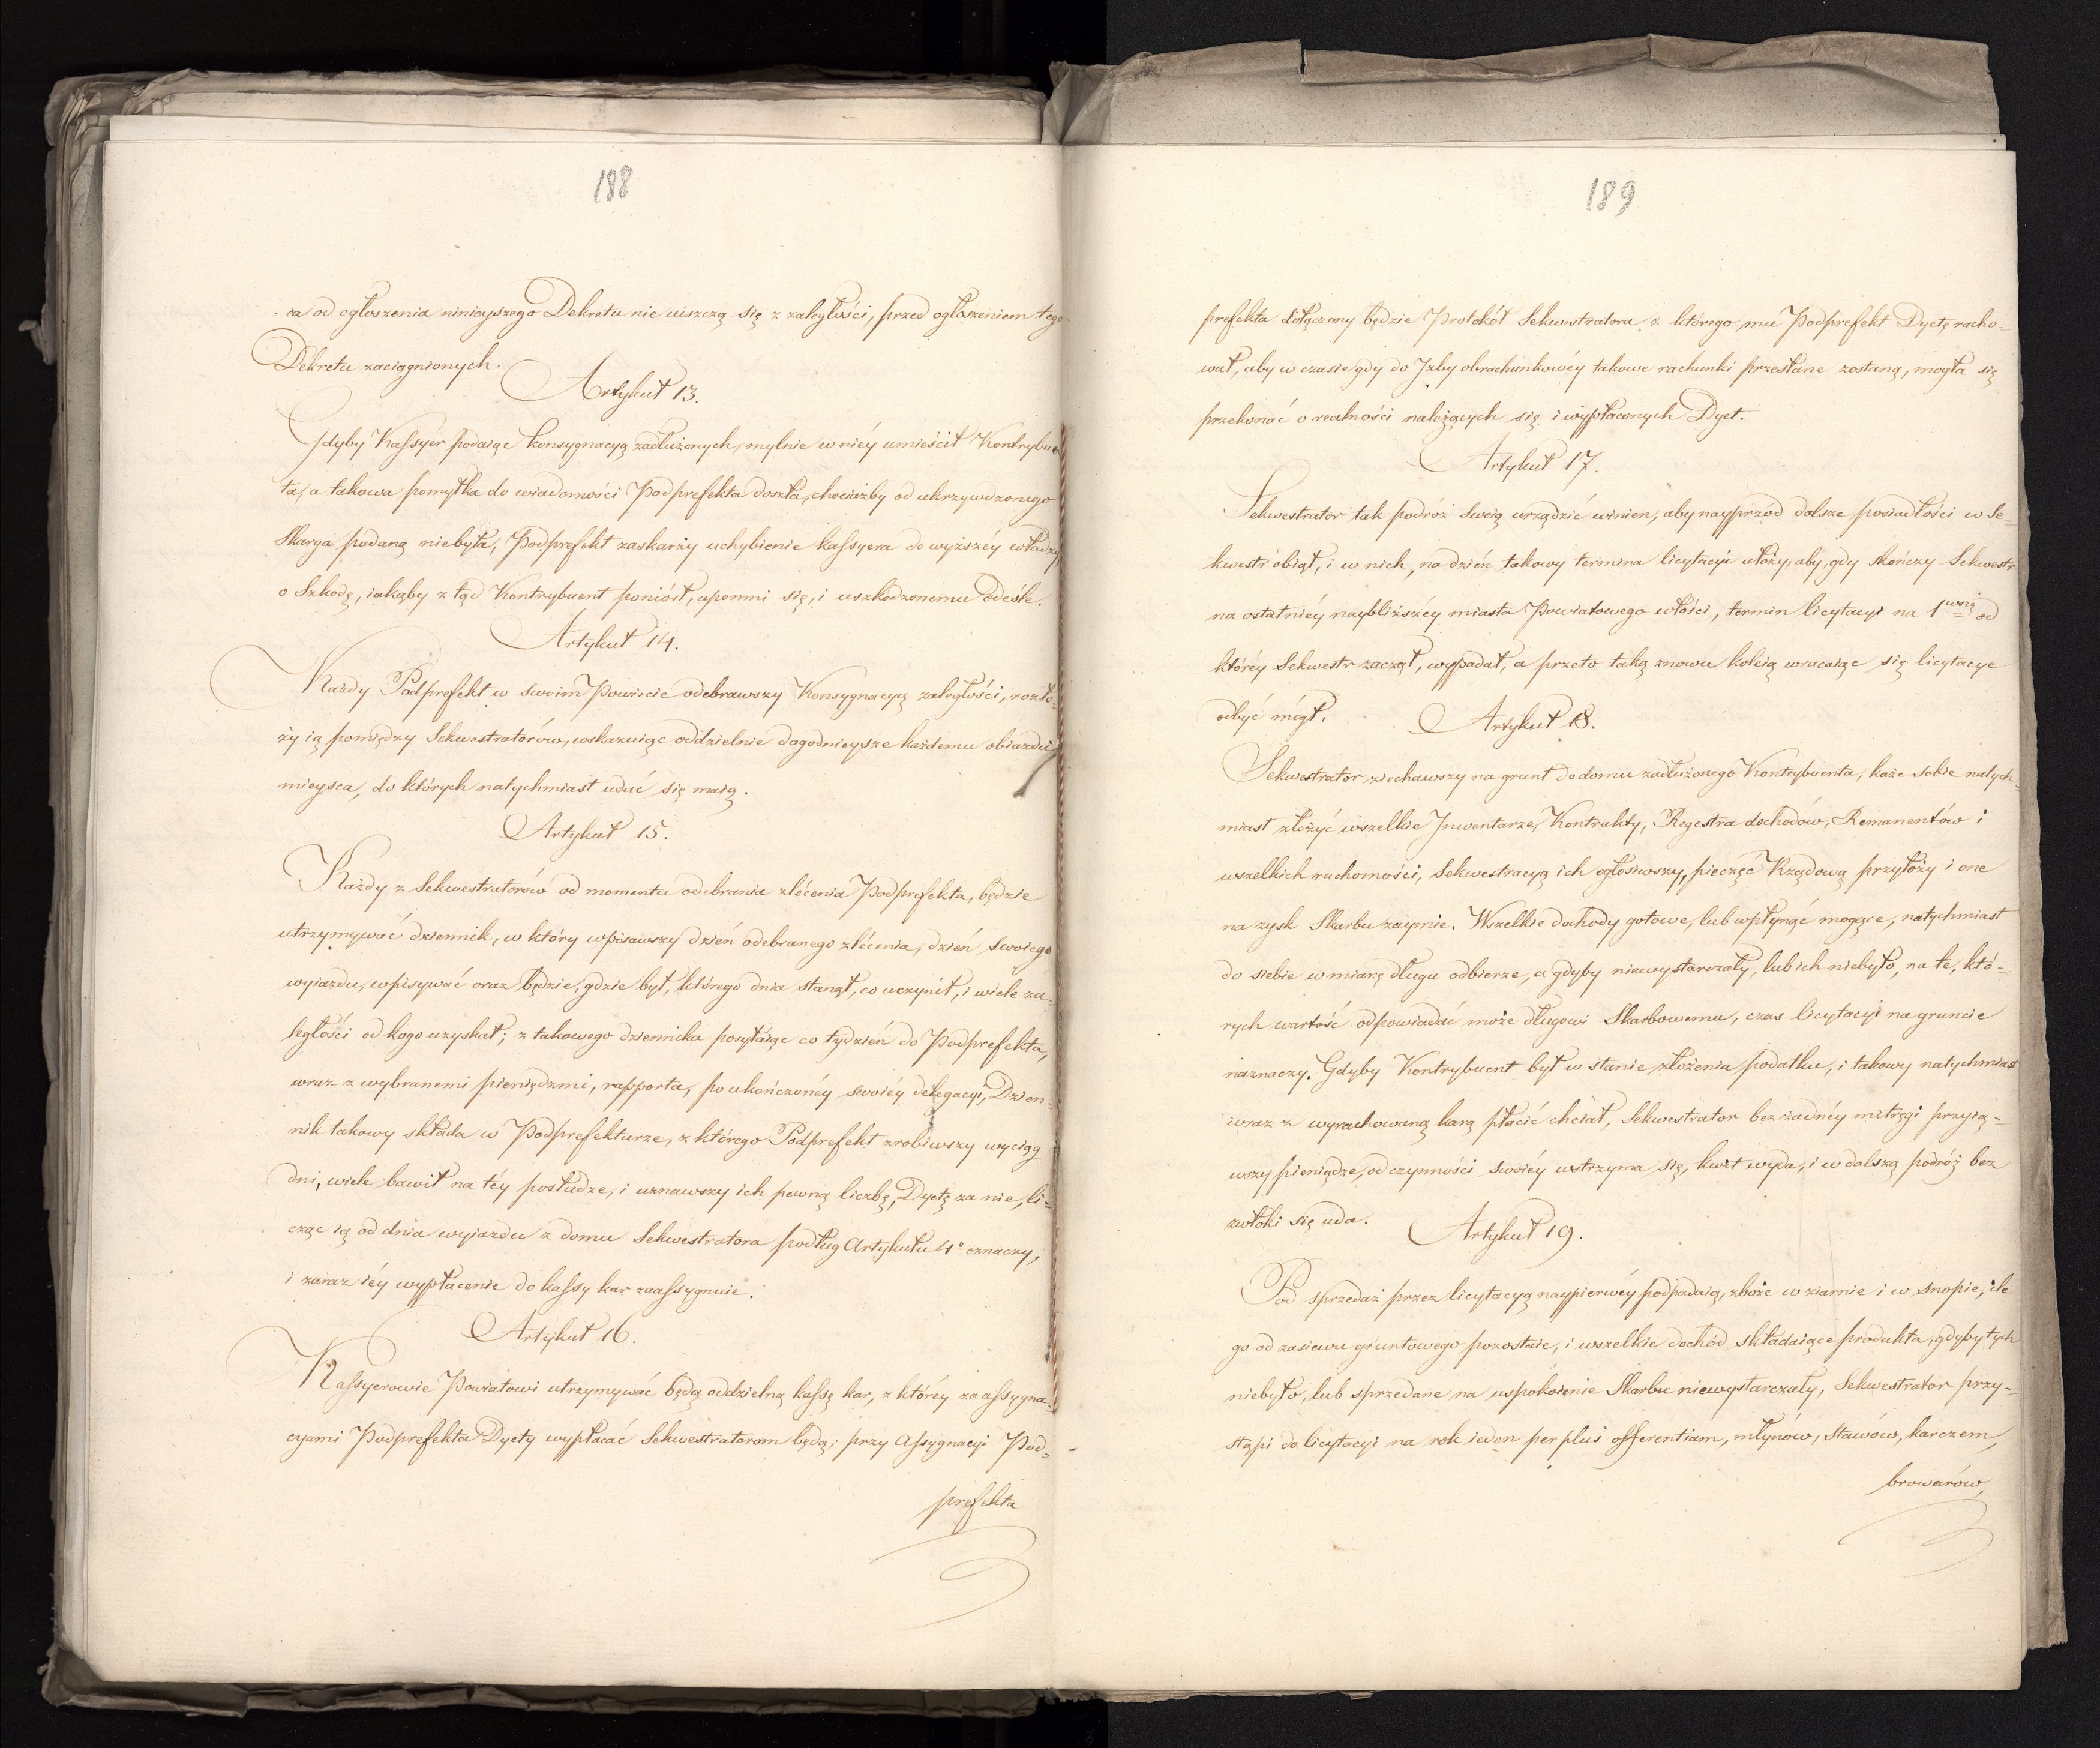 188
:ca od ogłoszenia ninieyszego Dekretu nie uiszczą się z zaległości, przed ogłoszeniem tego
Dekretu zaciągnionych.
Artykuł 13.
Gdyby Kassyer podaiąc konsygnacyą zadłużonych, mylnie w niéy umieścił Kontrybuen
ta, a takowa pomyłka do wiadomości Podprefekta doszła, chociażby od ukrzywdzonego
Skarga podaną niebyła, Podprefekt zaskarży uchybienie kassyera do wyższéy władzy
o Szkodę, iakąby z tąd Kontrybuent poniósł, upomni się, i uszkodzonemu odeśle.
Artykuł 14.
Każdy Podprefekt w swoim Powiecie odebrawszy Konsygnacyą zaległości, rozło-
ży ią pomiędzy Sekwestratorów, wskazuiąc oddzielnie dogodnieysze każdemu obiazdu
mieysca, do których natychmiast udać się maią.
Artykuł 15.
Każdy z Sekwestratorów od momentu odebrania zlécenia Podprefekta, będzie
utrzymywać dziennik, w który wpisawszy dzień odebranego zlécenia, dzień swoiego
wyiazdu, wpisywać oraz będzie, gdzie był, którego dnia stanął, co uczynił, i wiele za-
ległości od kogo uzyskał; z takowego dziennika posyłaiąc co tydzień do Podprefekta,
wraz z wybranemi pieniędzmi, rapporta, po ukończonéy swoiéy delegacyi, Dzien-
nik takowy składa w Podprefekturze, z którego Podprefekt zrobiwszy wyciąg
dni, wiele bawił na téy posłudze, i uznawszy ich pewną liczbę, Dyetę za nie, li-
cząc ią od dnia wyiazdu z domu Sekwestratora podług Artykułu 4º oznaczy,
i zaraz iéy wypłacenie do kassy kar zaassygnuie.
Artykuł 16.
Kassyerowie Powiatowi utrzymywać będą oddzielną kassę kar, z któréy za assygna-
cyami Podprefekta Dyety wypłacać Sekwestratorom będą; przy Assygnacyi Pod-
prefekta
189
prefekta dołączony będzie Protokół Sekwestratora z którego mu Podprefekt Dyetę racho-
wał, aby w czasie gdy do Izby obrachunkowéy takowe rachunki przesłane zostaną, mogła się
przekonać o realności należących się i wypłaconych Dyet.
Artykuł 17.
Sekwestrator tak podróż swoią urządzić winien, aby nayprzód dalsze posiadłości w Se-
kwestr obiął, i w nich, na dzień takowy termina licytacyi ułoży, aby gdy skończy Sekwestr
na ostatniéy naybliższéy miasta Powiatowego włości, termin licytacyi na 1wszą od
któréy Sekwestr zaczął, wypadał, a przeto taką znowu koleią wracaiąc się licytacye
odbyć mógł.
Artykuł 18.
Sekwestrator ziechawszy na grunt do domu zadłużonego Kontrybuenta, każe sobie natych-
miast złożyć wszelkie Inwentarze, Kontrakty, Regestra dochodów, Remanentów i
wszelkich ruchomości, Sekwestracyą ich ogłosiwszy, pieczęć Rządową przyłoży i one
na zysk Skarbu zaymie. Wszelkie dochody gotowe, lub wpłynąć mogące, natychmiast
do siebie w miarę długu odbierze, a gdyby niewystarczały, lub ich niebyło, na te, któ-
rych wartość odpowiadać może długowi Skarbowemu, czas licytacyi na gruncie
naznaczy. Gdyby Kontrybuent był w stanie złożenia podatku, i takowy natychmiast
wraz z wyrachowaną karą płacić chciał, Sekwestrator bez żadnéy mitręgi przyią-
wszy pieniądze, od czynności swoiéy wstrzyma się, kwit wyda, i w dalszą podróż bez
zwłoki się uda.
Artykuł 19.
Pod sprzedaż przez licytacyą naypierwéy podpadaią, zboże w ziarnie i w snopie, ile
go od zasiewu gruntowego pozostaie, i wszelkie dochód składaiące produkta, gdyby tych
niebyło, lub sprzedane na uspokoienie Skarbu niewystarczały, Sekwestrator przy-
stąpi do licytacyi na rok ieden per plus offerentiam, młynów, stawów, karczem,
browarów,